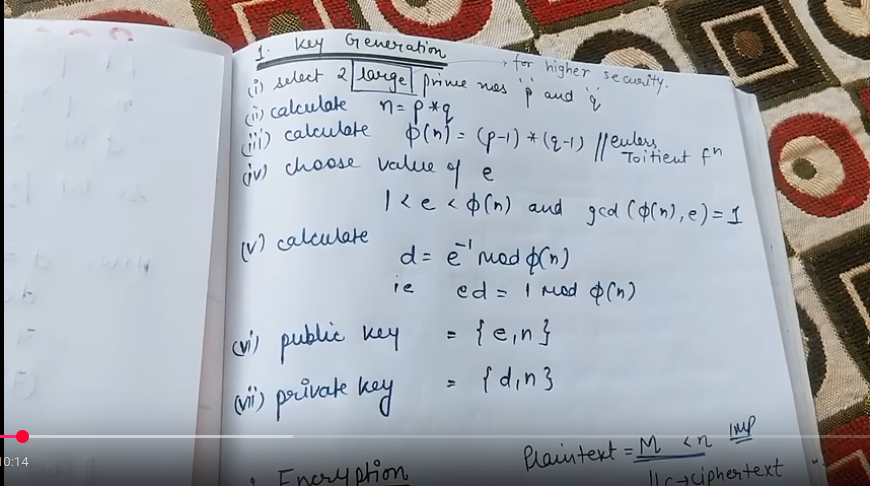 1. Key Generation
→ for higher security.
(i) select 2 large prime nos 'p' and 'q'
(ii) calculate n = p * q
(iii) calculate φ(n) = (p-1) * (q-1) // eulers
Toitient fⁿ
(iv) choose value of e
1 < e < φ(n) and gcd (φ(n), e) = 1
(v) calculate
d = e⁻¹ mod φ(n)
ie ed = 1 mod φ(n)
(vi) public key = { e, n }
(vii) private key = { d, n }
Plaintext = M < n IMP
Encryption
|| C → ciphertext
0:14